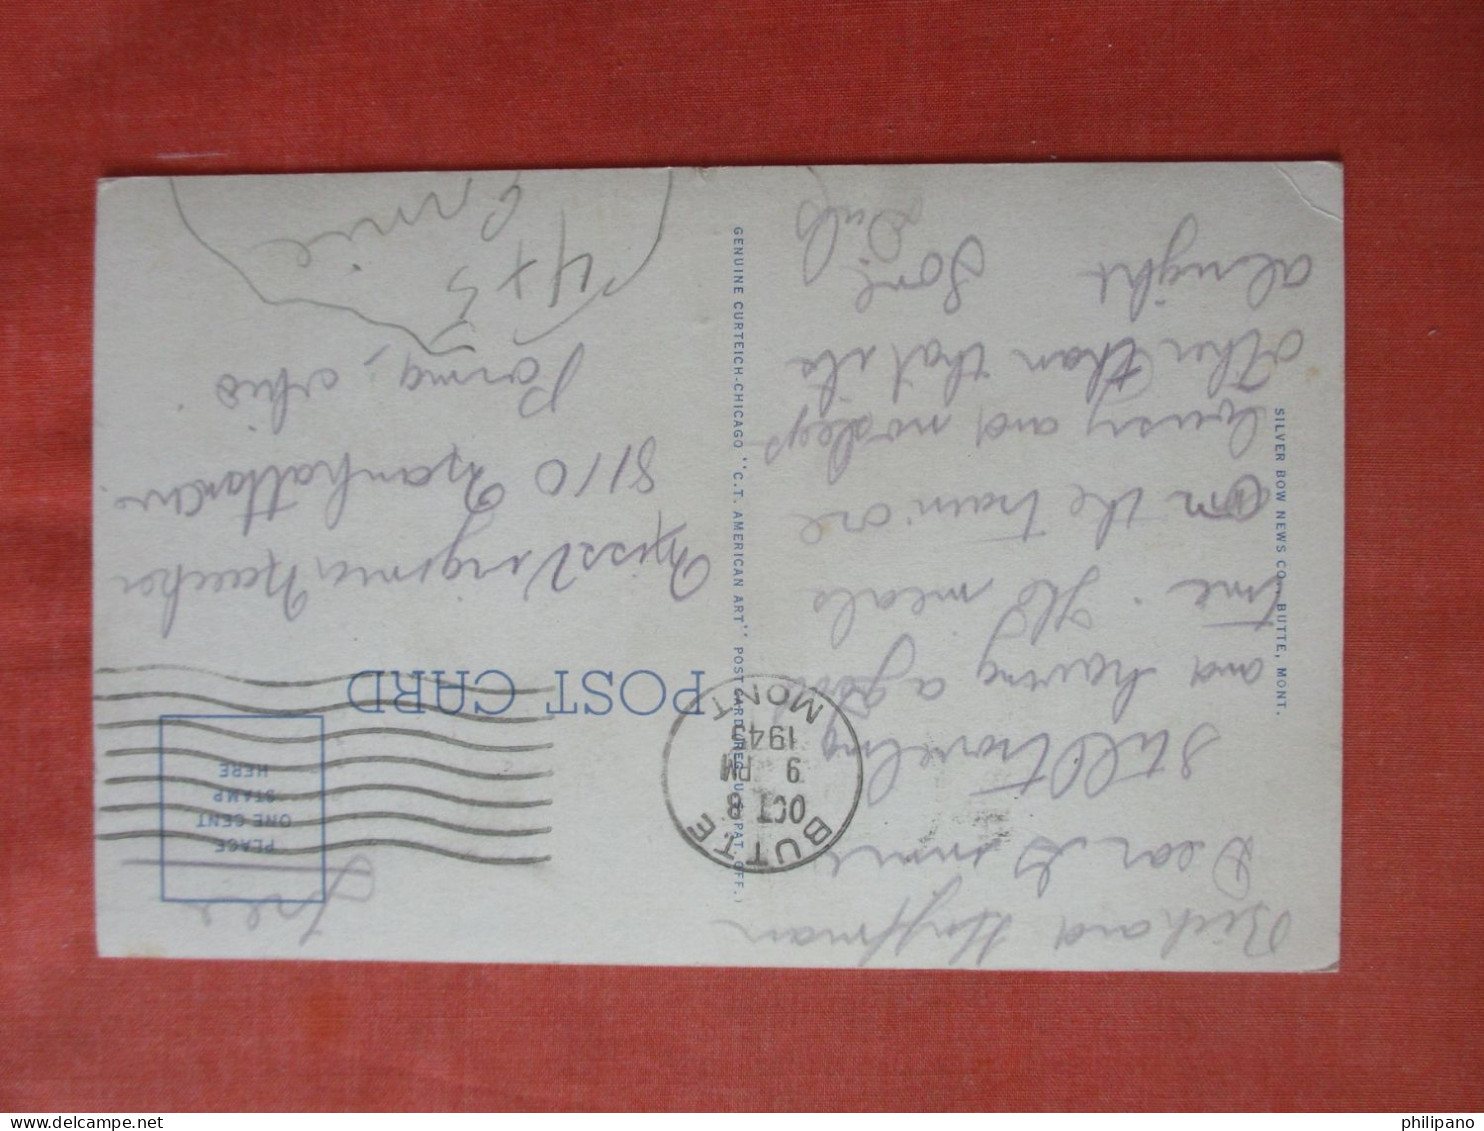 Richard Hoffman
Free
Dear Ginnie
Still traveling
and having a good
time. The meals
on the train are
lousy and no sleep
other than that its
alright
Love
PLACE
ONE CENT
STAMP
HERE
BUTTE
OCT 8
9 PM
MONT
POST CARD
Miss Virginia
8110 Manhattan Av.
Parma, Ohio
4 x 5
SILVER BOW NEWS CO., BUTTE, MONT.
GENUINE CURTEICH-CHICAGO "C.T. AMERICAN ART" POST CARD (REG. U.S. PAT. OFF.)
philipano